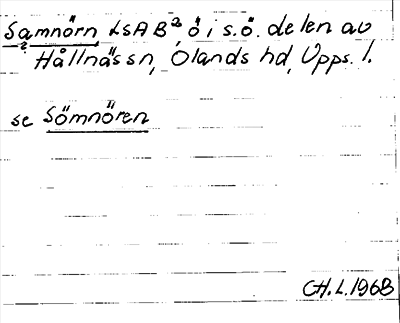 Samnörn LSAB², ö i s.ö. delen av
Hållnäs sn, Olands hd, Upps. l.
se Sömnören
CH.L.1968